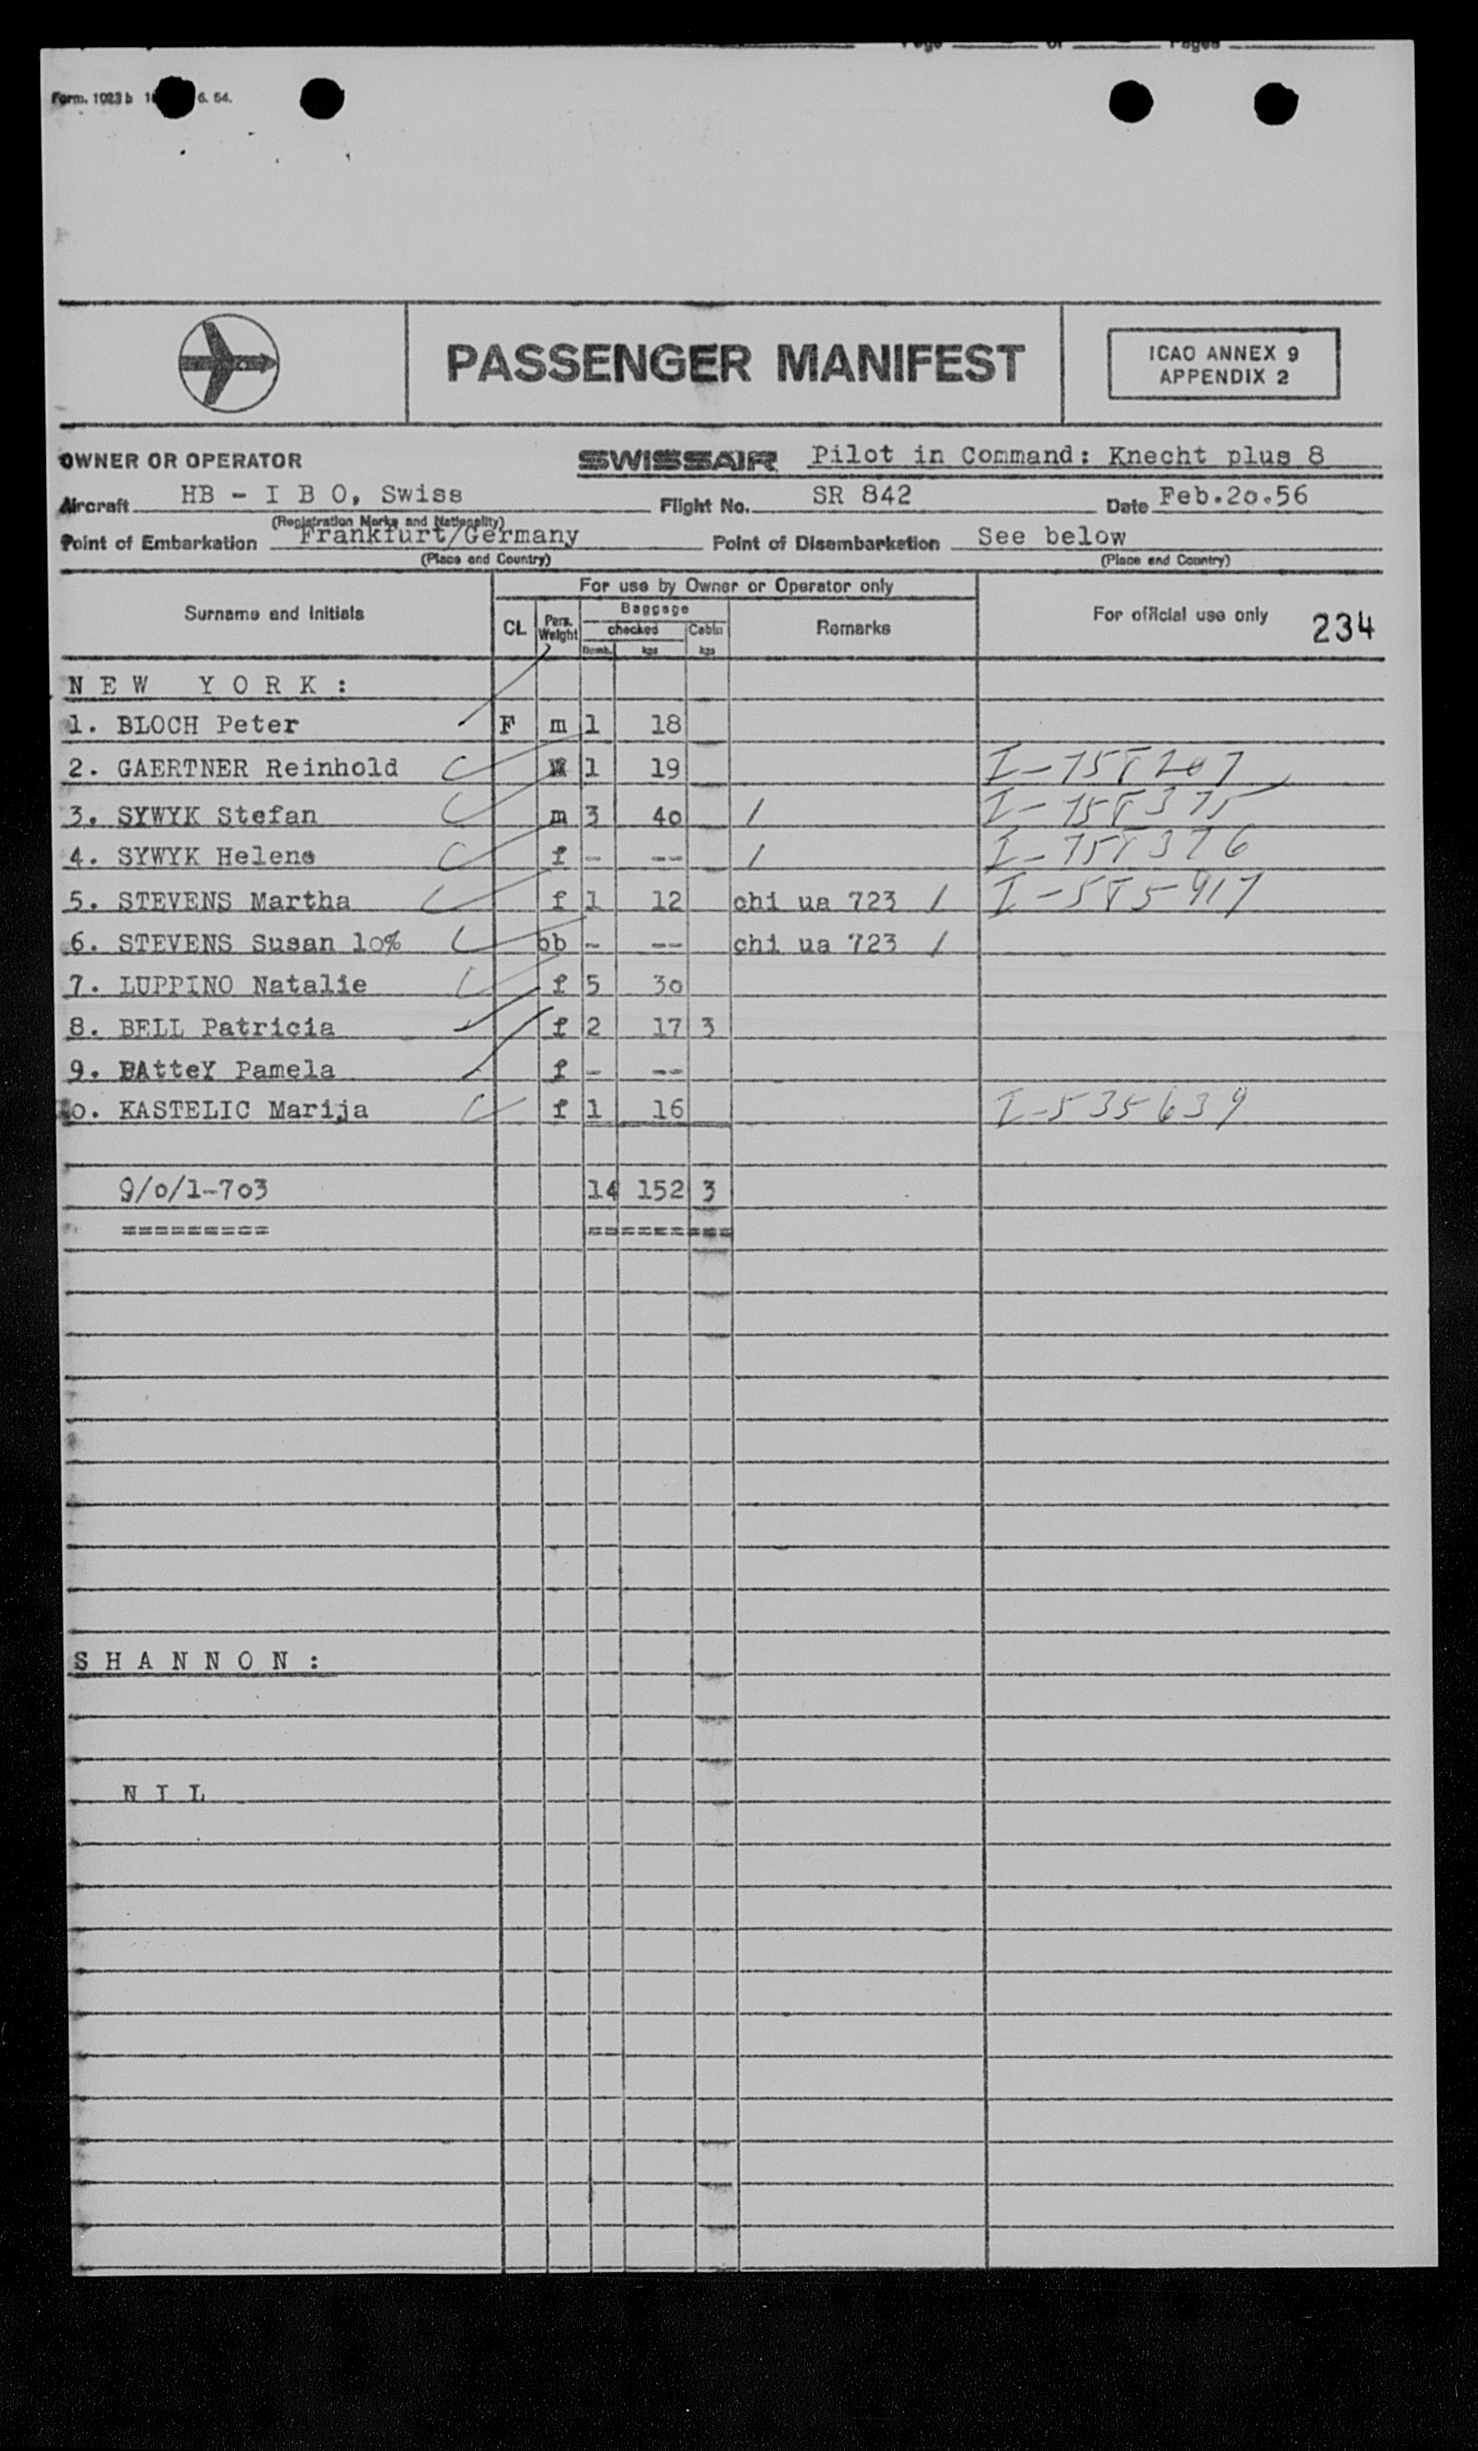 Page of Pages
Form. 1023 b 6. 54.
PASSENGER MANIFEST
ICAO ANNEX 9
APPENDIX 2
OWNER OR OPERATOR SWISSAIR Pilot in Command: Knecht plus 8
Aircraft HB - I B O, Swiss Flight No. SR 842 Date Feb.2o.56
(Registration Marks and Nationality)
Point of Embarkation Frankfurt/Germany Point of Disembarkation See below
(Place and Country) (Place and Country)
For use by Owner or Operator only
Surname and Initials CL Pers. Weight Baggage Remarks For official use only 234
checked Cabin
Numb. kgs kgs
N E W Y O R K :
1. BLOCH Peter F m 1 18
2. GAERTNER Reinhold 1 19 I-758207
3. SYWYK Stefan m 3 4o / I-758375
4. SYWYK Helene f - -- / I-758376
5. STEVENS Martha f 1 12 chi ua 723 / I-585917
6. STEVENS Susan 1o% bb - -- chi ua 723 /
7. LUPPINO Natalie f 5 3o
8. BELL Patricia f 2 17 3
9. BAtteY Pamela f - --
o. KASTELIC Marija f 1 16 I-535639
9/o/1-7o3 14 152 3
========= =========
S H A N N O N :
N I L